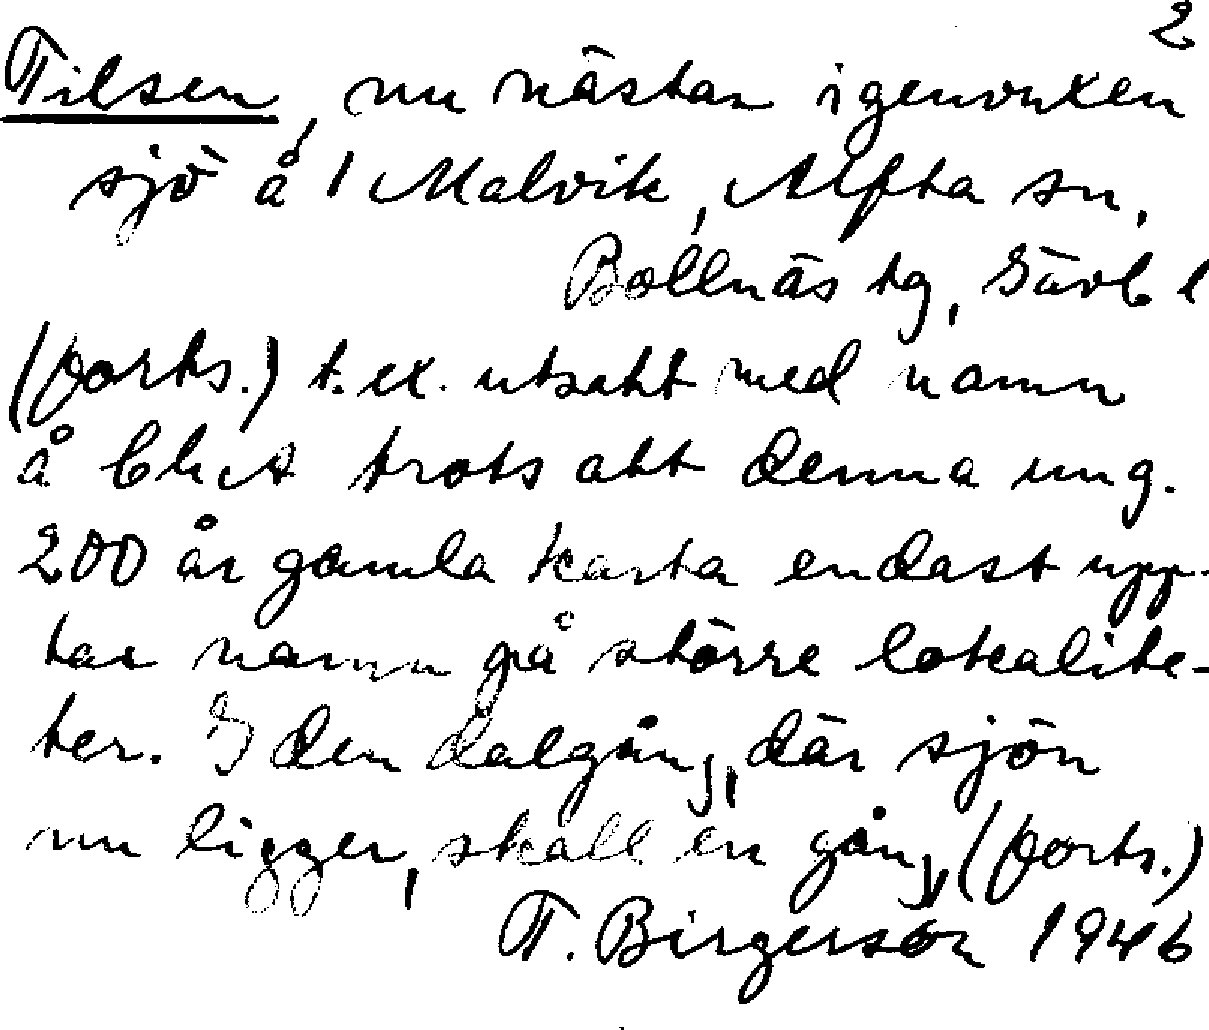 2
Tilsen, nu nästan igenvuxen
sjö å 1 Malvik, Alfta sn,
Bollnäs tg, Gävlb l
(forts.) t.ex. utsatt med namn
å ChA trots att denna ung.
200 år gamla karta endast upp-
tar namn på större lokalite-
ter. I den dalgång, där sjön
nu ligger, skall en gång, (forts.)
T. Birgerson 1946